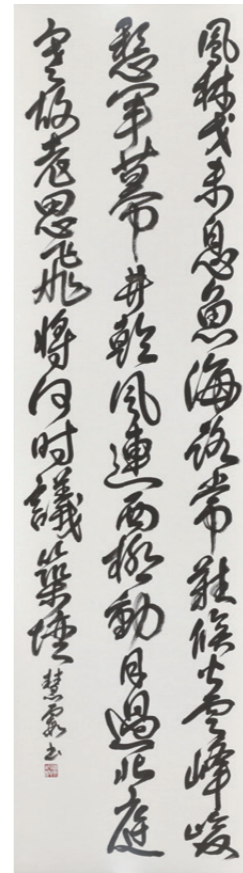 鳳林戈未息魚海路常難候火雲峰峻
懸軍幕井乾風連西極動月過北庭
寒故老思飛將何时議築壇 慧霞书